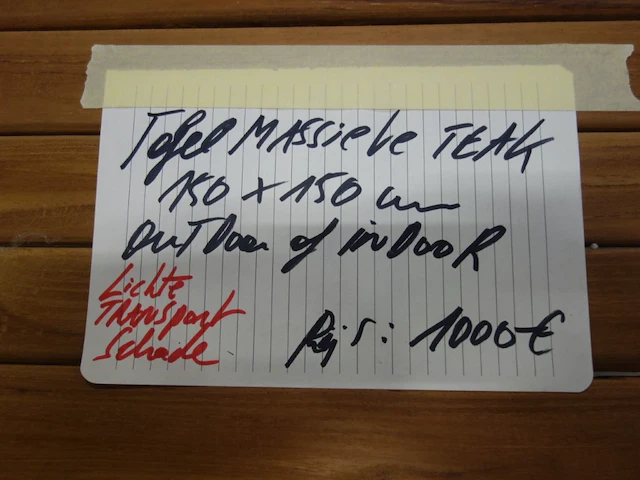 Tafel MASSieve TEAK
150 x 150 cm
OUTDoor of inDooR
Lichte
TRANSport
Schade
Prijs: 1000€